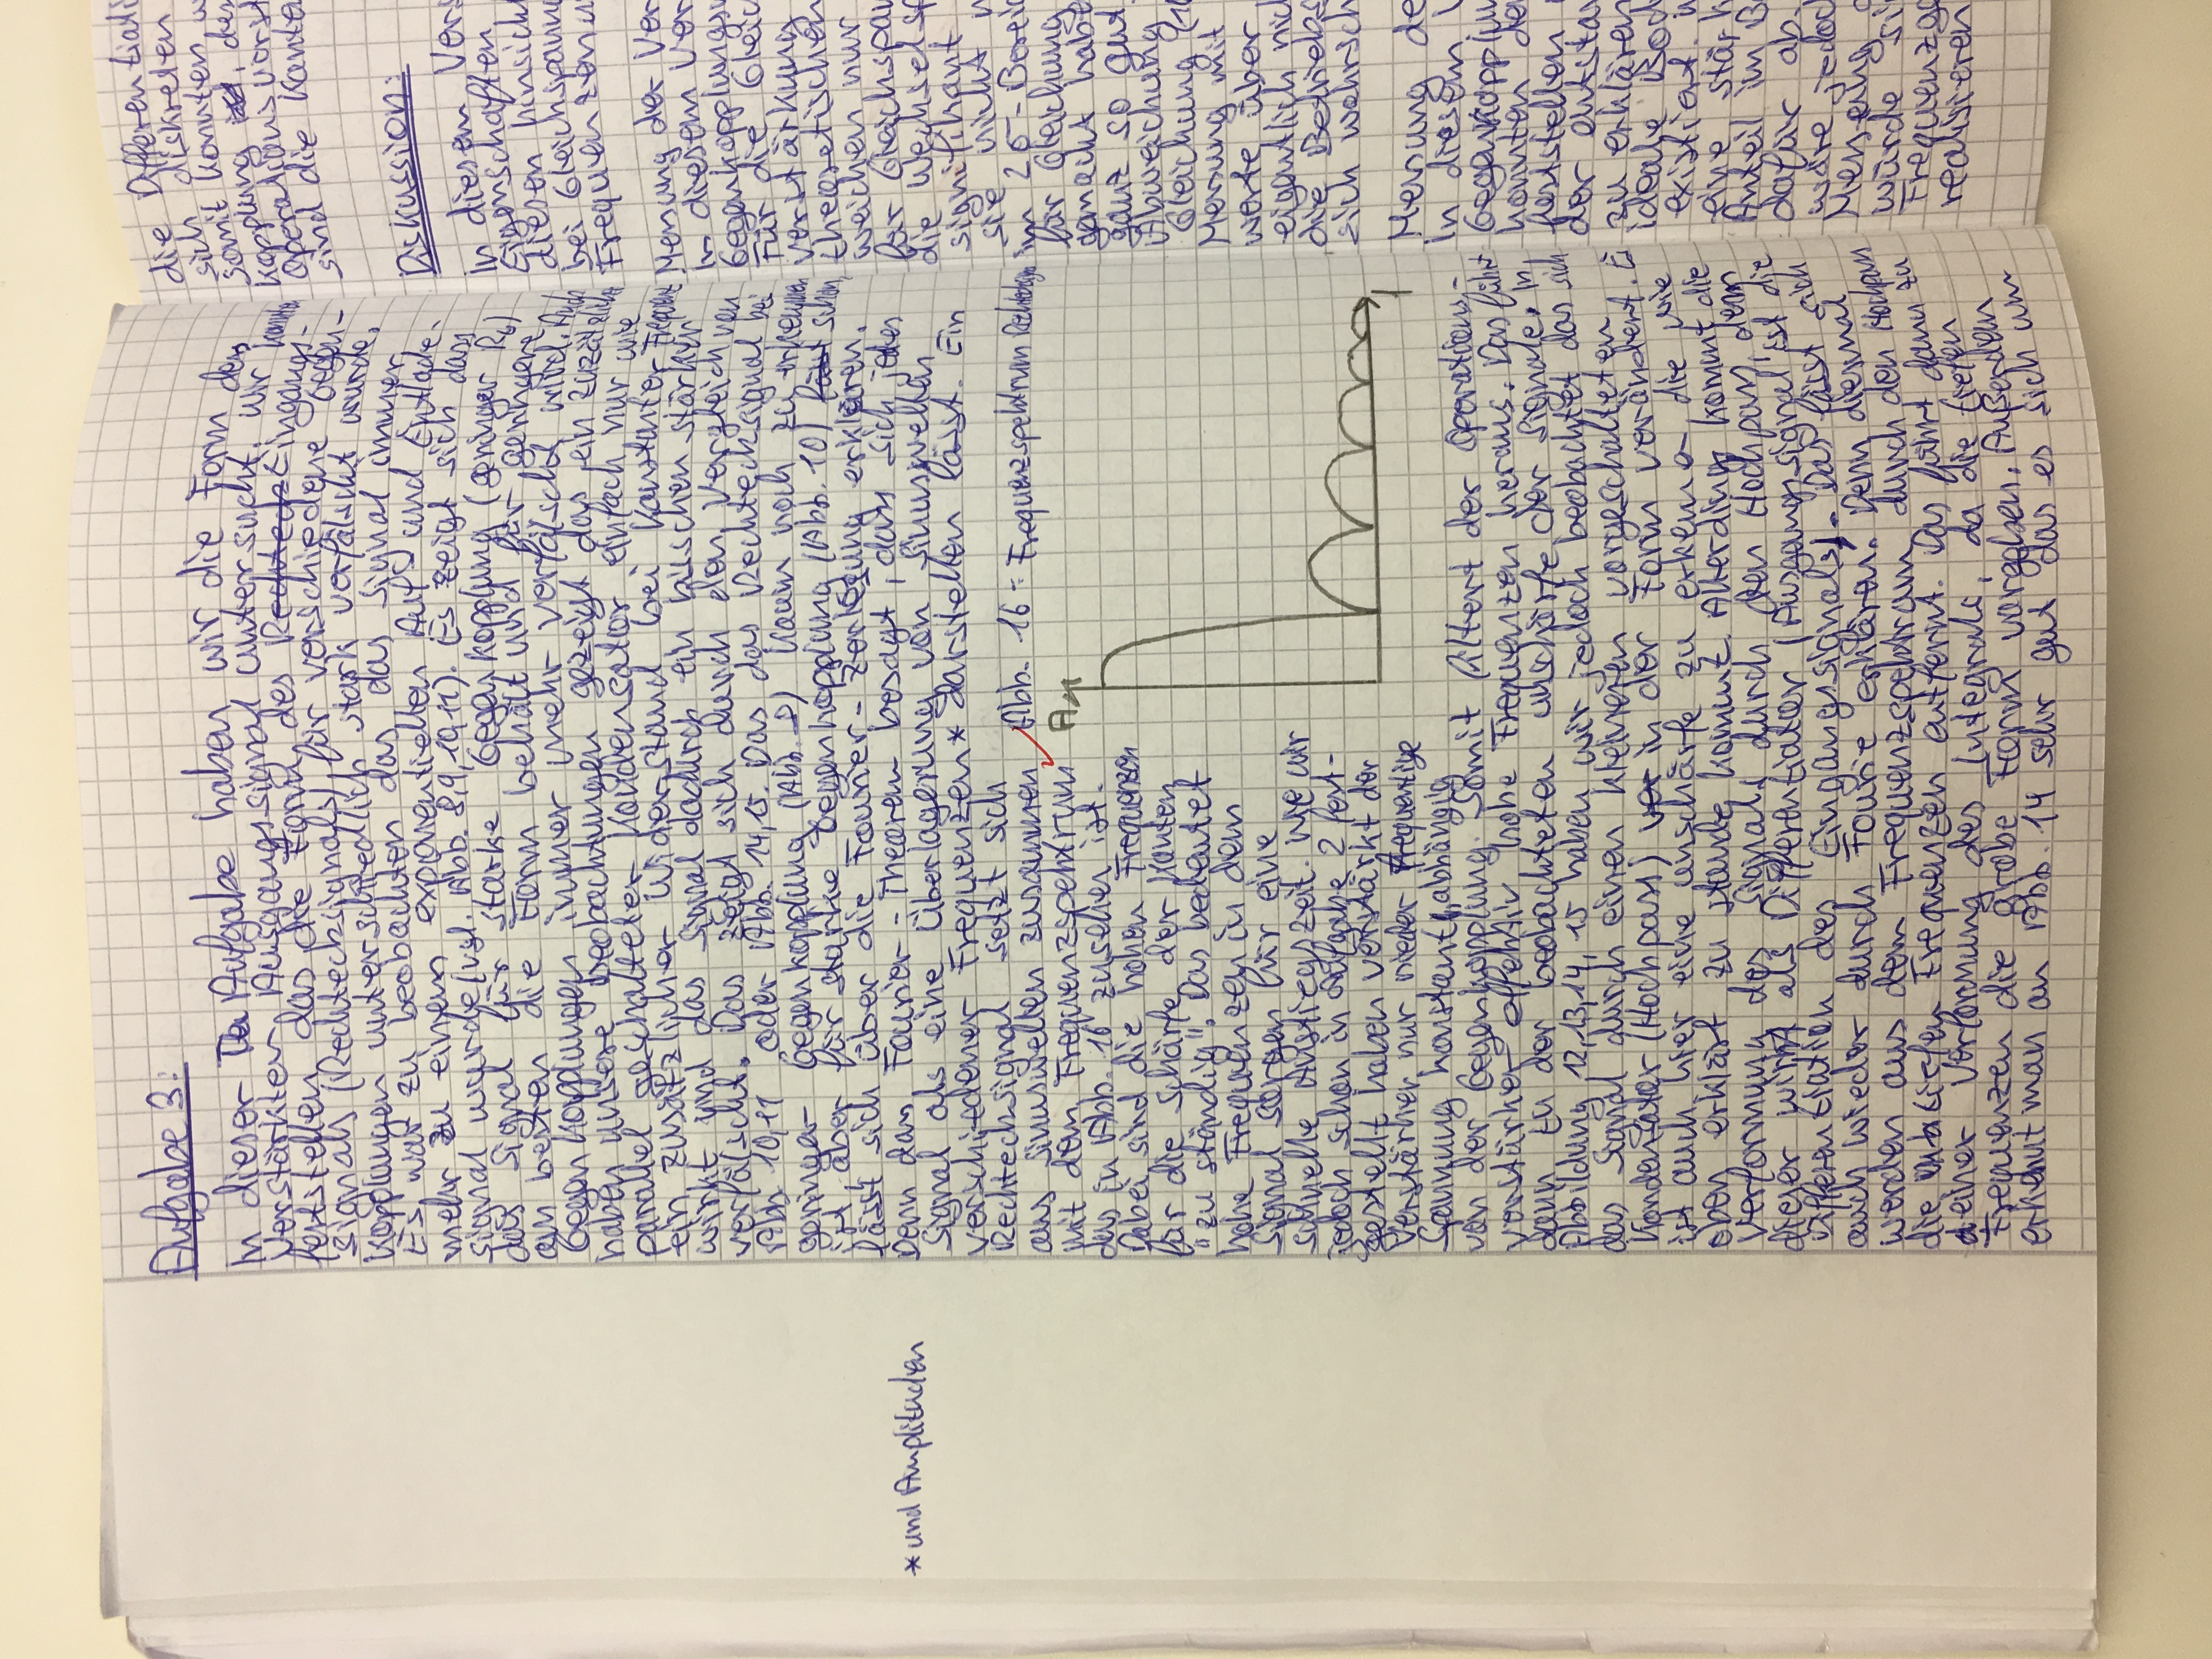 Aufgabe 3:
In dieser Aufgabe haben wir die Form des
verstärkten Ausgangssignal untersucht. Wir konnten
feststellen das die Form des Eingangs-
signals (Rechtecksignals) für verschiedene Gegen-
kopplungen unterschiedlich stark verfälscht wurde.
Es war zu beobachten das das Signal immer
mehr zu einem exponentiellen Auf- und Entlade-
signal wurde (vgl. Abb. 8,9,10,11). Es zeigt sich dass
das Signal für starke Gegenkopplung (geringer R_G)
am besten die Form behält und für geringere
Gegenkopplungen immer mehr verfälscht wird. Auch
haben unsere Beobachtungen gezeigt das ein zuzätzlich
parallel geschalteter Kondensator einfach nur wie
ein zusätzlicher Widerstand bei konstanter Frequenz
wirkt und das Signal dadurch ein bisschen stärker
verfälscht. Das zeigt sich durch den Vergleich von
Abb. 10,11 oder Abb. 14,15. Das das Rechtecksignal bei
geringer Gegenkopplung (Abb. 8) kaum noch zu erkennen
ist, aber für starke Gegenkopplung (Abb. 10) schon,
lässt sich über die Fourier-Zerlegung erklären.
Denn das Fourier-Theorem besagt, dass sich jedes
Signal als eine Überlagerung von Sinuswellen
* und Amplituden
verschiedener Frequenzen* darstellen lässt. Ein
Rechtecksignal setzt sich
aus Sinuswellen zusammen
mit dem Frequenzspektrum
das in Abb. 16 zusehen ist.
Dabei sind die hohen Frequenzen
für die Schärfe der Kanten
"zu ständig". Das bedeutet
hohe Frequenzen in dem
Signal sorgen für eine
schnelle Anstiegszeit. Wie wir
jedoch schon in Aufgabe 2 fest-
gestellt haben verstärkt der
Verstärker nur nieder frequentige
Spannung konstant, abhängig
Abb. 16: Frequenzspektrum
A
f
von der Gegenkopplung. Somit filtert der Operations-
verstärker effektiv hohe Frequenzen heraus. Das führt
dann zu der beobachteten Unschärfe der Signale. In
Abbildung 12,13,14,15 haben wir jedoch beobachtet das sich
das Signal durch einen kleineren vorgeschalteten
Kondensator (Hochpass) in der Form verändert. E
ist auch hier eine Unschärfe zu erkenne die wie
oben erklärt zu stande kommt. Allerding kommt die
Verformung des Signals durch den Hochpass, denn
dieser wirkt als Differentiator (Ausgangssignal ist die
Differentiation des Eingangssignals). Das lässt sich
auch wieder durch Fourie erklären. Denn diesmal
werden aus dem Frequenzspektrum durch den Hochpass
die tiefen Frequenzen entfernt. Das führt dann zu
einer Verformung des Integrals, da die tiefen
Frequenzen die grobe Form vorgeben. Außerdem
erkennt man an Abb. 14 sehr gut das es sich um
die Differentiati
sich diskreten
somit konnten w
kopplung
Operationsverst
sind die Kante
Diskussion:
In diesem Vers
Eigenschaften
diesen hinsich
bei Gleichspannu
Frequenzen u
Messung der Ver
In diesem Ver
Gegenkopplungsw
Für die Gleic
verstärkung
theoretischen
weichen nur
für Gleichspan
die Wechselsp
signifikant
sie nicht
im 2σ-Bereic
für Gleichung
gemacht habe
ganz so gut
Abweichung
Gleichung (1
Messung mit
werte über
eigentlich nic
die Betriebs
sich wahrsch
Messung de
In diesem V
Gegenkopplun
konnten de
feststellen
der entsta
zu erklären
ideale Bod
existiert. w
eine stärk
Anteil im B
dafür ab.
wäre jedoc
Messung
würde si
Frequenzg
realisieren